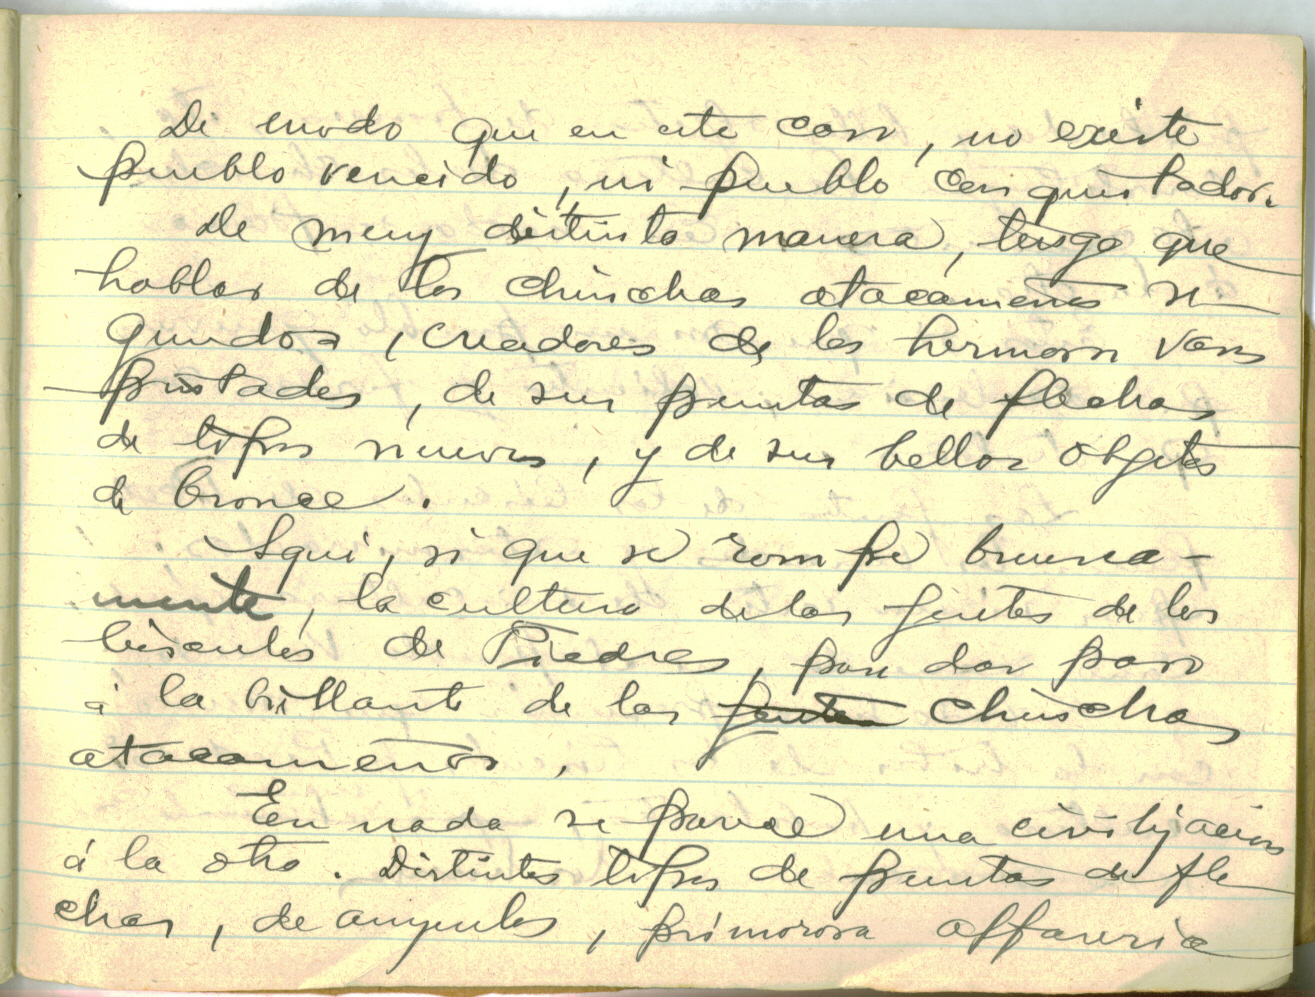 De modo que en este caso, no existe
pueblo vencido, ni pueblo conquistador.
De muy distinta manera, tengo que
hablar de los chinchas atacameños se
gundos, creadores de los hermosos vasos
pintados, de sus puntas de flechas
de tipos nuevos, y de sus bellos objetos
de bronce.
Aqui, si que se rompe
mente, la cultura de las gentes de los
de Piedras, para dar paso
á la brillante de los chinchas
atacameños.
En nada se parece una civilizacion
á la otra. Distintos tipos de puntas de fle
chas, de anzuelos, primorosa alfareria